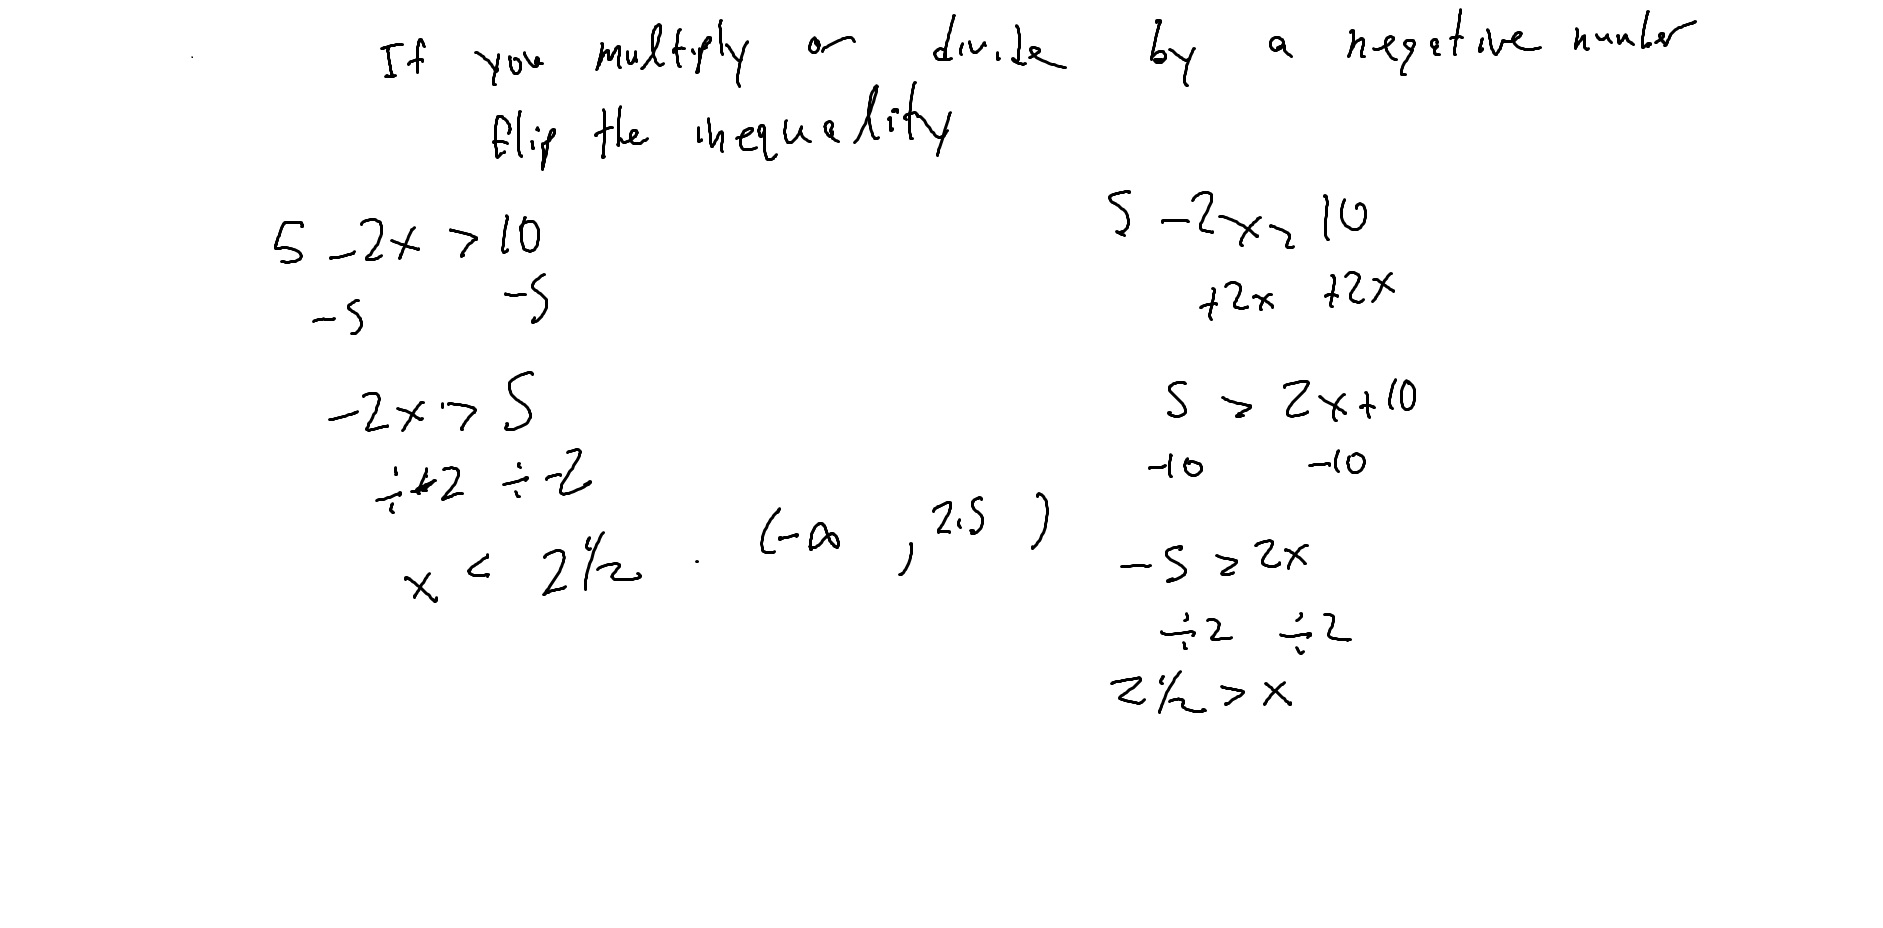 If you multiply or divide by a negative number
flip the inequality
5 -2x > 10
-5 -5
-2x > 5
÷-2 ÷-2
x < 2 1/2 . (-∞ , 2.5 )
5 -2x > 10
+2x +2x
5 > 2x+10
-10 -10
-5 > 2x
÷2 ÷2
2 1/2 > x